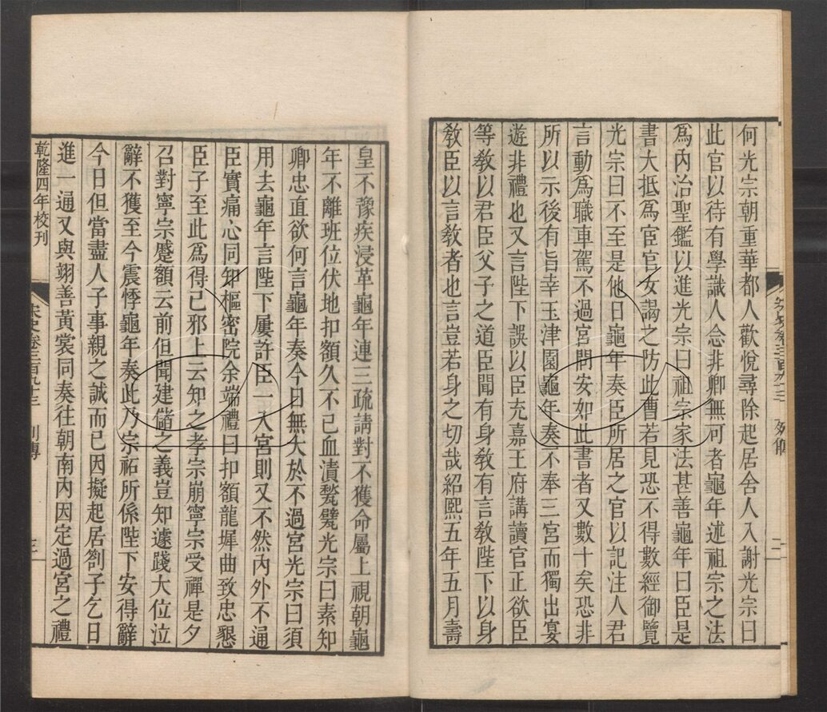 何光宗朝重華都人歡悅尋除起居舍人入謝光宗曰
此官以待有學識人念非卿無可者龜年述祖宗之法
爲內治聖鑑以進光宗曰祖宗家法甚善龜年曰臣是
書大抵爲宦官女謁之防此曹若見恐不得數經御覽
光宗曰不至是他日龜年奏臣所居之官以記注人君
言動爲職車駕不過宮問安如此書者又數十矣恐非
所以示後有旨幸玉津園龜年奏不奉三宮而獨出宴
遊非禮也又言陛下誤以臣充嘉王府講讀官正欲臣
等敎以君臣父子之道臣聞有身敎有言敎陛下以身
敎臣以言敎者也言豈若身之切哉紹熙五年五月壽
皇不豫疾浸革龜年連三疏請對不獲命屬上視朝龜
年不離班位伏地扣額久不已血漬甃甓光宗曰素知
卿忠直欲何言龜年奏今日無大於不過宮光宗曰須
用去龜年言陛下屢許臣一入宮則又不然內外不通
臣實痛心同知樞密院余端禮曰扣額龍墀曲致忠懇
臣子至此爲得已邪上云知之孝宗崩寧宗受禪是夕
召對寧宗蹙額云前但聞建儲之義豈知遽踐大位泣
辭不獲至今震悸龜年奏此乃宗祏所係陛下安得辭
今日但當盡人子事親之誠而已因擬起居劄子乞日
進一通又與翊善黃裳同奏往朝南內因定過宮之禮
乾隆四年校刊
宋史卷三百九十三 列傳
三